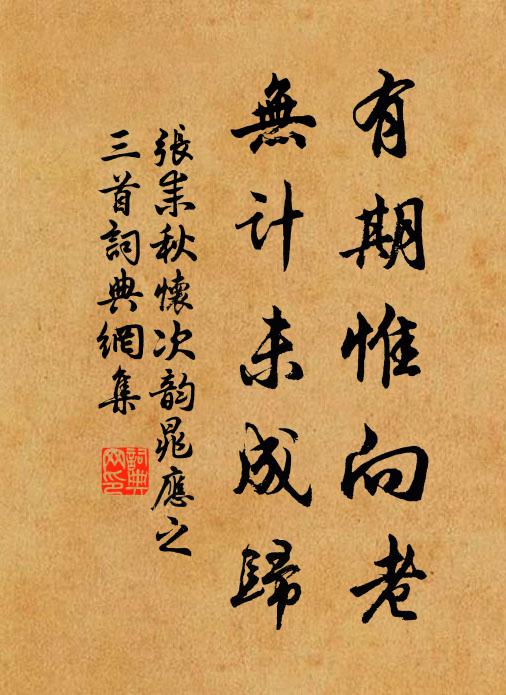 有期惟向老
無計未成歸
張耒秋懷次韵晁應之
三首詞典網集
詞典網印